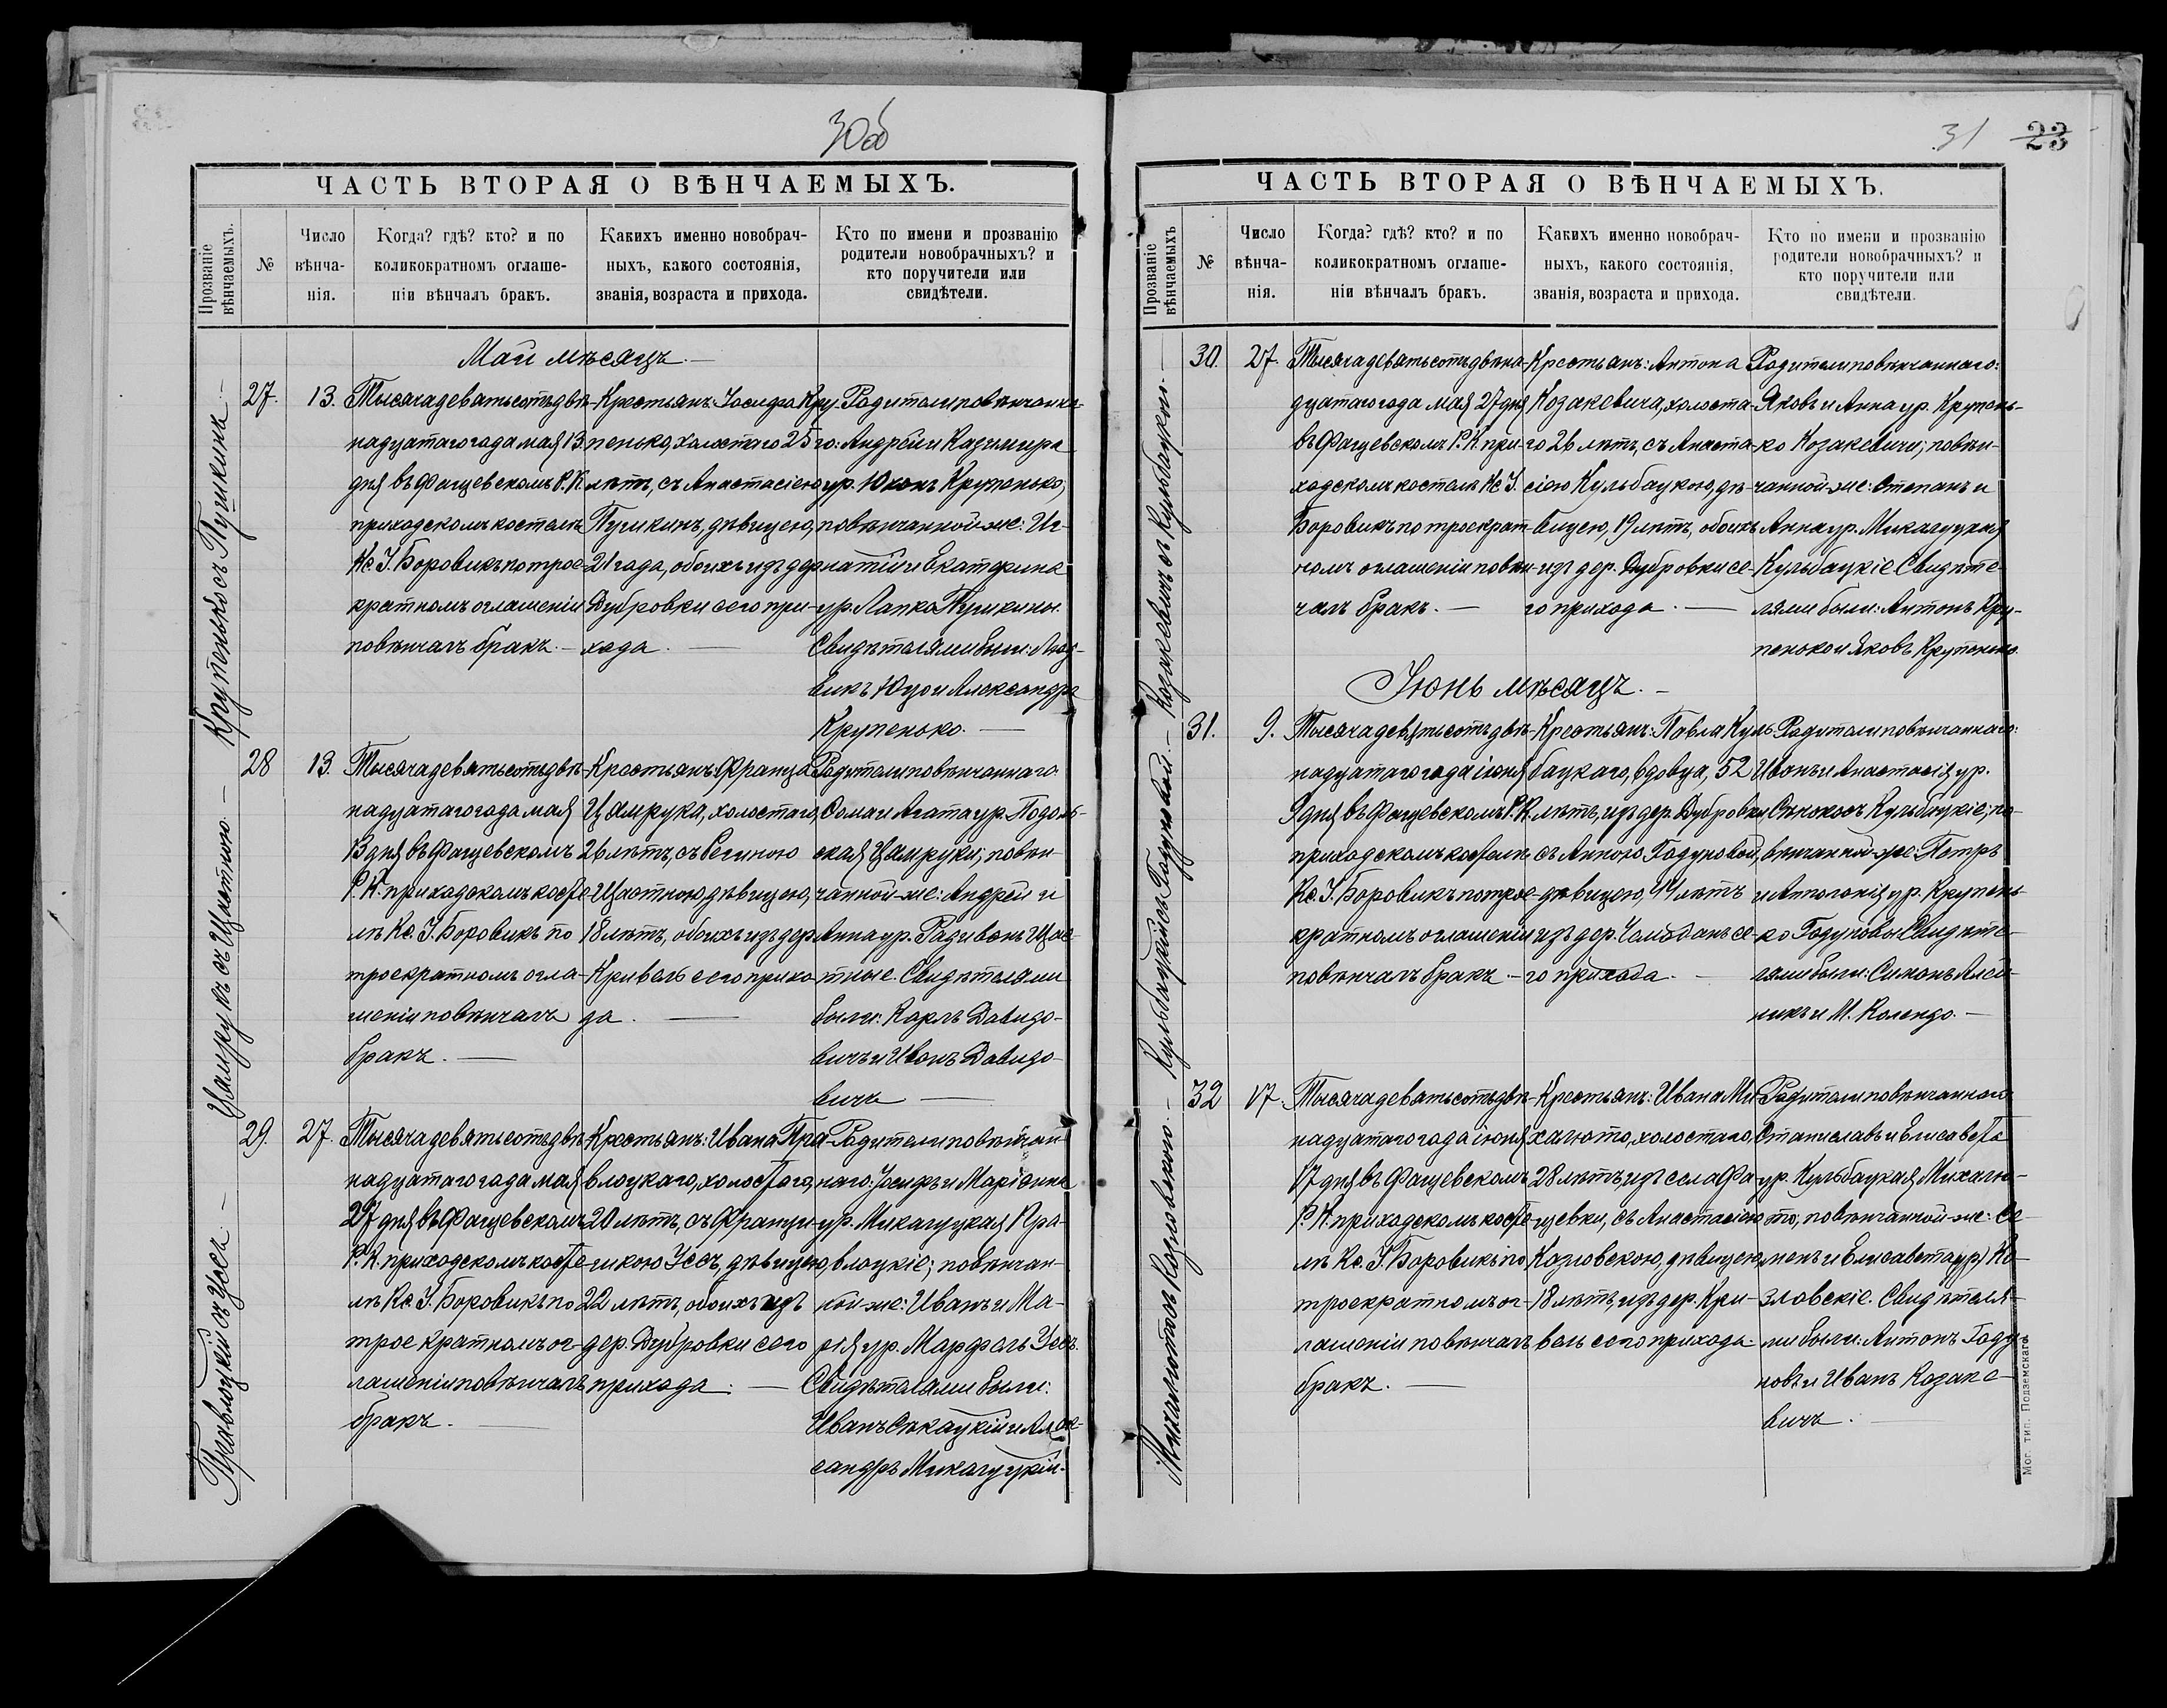 30об
ЧАСТЬ ВТОРАЯ О ВѢНЧАЕМЫХЪ.
Прозваніе вѣнчаемыхъ.
№
Число вѣнча-нія.
Когда? гдѣ? кто? и по коликократномъ оглаше-ніи вѣнчалъ бракъ.
Какихъ именно новобрач-ныхъ, какого состоянія, званія, возраста и прихода.
Кто по имени и прозванію родители новобрачныхъ? и кто поручители или свидѣтели.
Май мѣсяцъ.
Крупенько съ Пушкинъ
27.
13.
Тысяча девятьсотъ двѣ-
надцатаго года мая 13
дня въ Фащевскомъ Р. К.
приходскомъ костелѣ
Кс. І. Боровикъ по трое-
кратномъ оглашеніи
повѣнчалъ бракъ.
Крестьянъ: Іосифа Кру-
пенько, холостаго 25
лѣтъ, съ Анастасіею
Пушкинъ, дѣвицею,
21 года, обоихъ изъ дер.
Дубровки сего при-
хода.
Родители повѣнчанна-
го: Андрей и Казимира
ур. Юхонъ Крупенько;
повѣнчанной-же: Иг-
натій и Екатерина
ур. Лапко Пушкины.
Свидѣтелями были: Люд-
викъ Юцо и Александръ
Крупенько.
Цамрукъ съ Щастною
28
13.
Тысяча девятьсотъ двѣ-
надцатаго года мая
13 дня въ Фащевскомъ
Р. К. приходскомъ косте-
лѣ Кс. І. Боровикъ по
троекратномъ огла-
шеніи повѣнчалъ
бракъ.
Крестьянъ: Франца
Цамрука, холостаго,
26 лѣтъ, съ Региною
Щастною, дѣвицею,
18 лѣтъ, обоихъ изъ дер.
Кривель сего прихо-
да.
Родители повѣнчаннаго:
Ѳома и Агата ур. Подоль-
ская Цамруки; повѣн-
чанной-же: Андрей и
Анна ур. Радивонъ Щас-
тные. Свидѣтелями
были: Карлъ Давидо-
вичъ и Иванъ Давидо-
вичъ
Правлоцкій съ Уссъ.
29.
27.
Тысяча девятьсотъ двѣ-
надцатаго года мая
27 дня въ Фащевскомъ
Р. К. приходскомъ косте-
лѣ Кс. І. Боровикъ по
троекратномъ ог-
лашеніи повѣнчалъ
бракъ.
Крестьянъ: Ивана Пра-
влоцкаго, холостаго,
20 лѣтъ, съ Франци-
шкою Уссъ, дѣвицею,
22 лѣтъ, обоихъ изъ
дер. Дубровки сего
прихода.
Родители повѣнчан-
наго: Іосифъ и Маріанна
ур. Микагуцкая Пра-
влоцкіе; повѣнчан-
ной-же: Иванъ и Ма-
рія ур. Марфель Уссъ.
Свидѣтелями были:
Иванъ Сѣкацкій и Алек-
сандръ Микагуцкій.
31
23
ЧАСТЬ ВТОРАЯ О ВѢНЧАЕМЫХЪ.
Прозваніе вѣнчаемыхъ
№
Число вѣнча-нія.
Когда? гдѣ? кто? и по коликократномъ оглаше-ніи вѣнчалъ бракъ.
Какихъ именно новобрач-ныхъ, какого состоянія, званія, возраста и прихода.
Кто по имени и прозванію родители новобрачныхъ? и кто поручители или свидѣтели.
Козакевичъ съ Кульбацкою
30.
27.
Тысяча девятьсотъ двѣна-
дцатаго года мая 27 дня
въ Фащевскомъ Р. К. при-
ходскомъ костелѣ Кс. І.
Боровикъ по троекрат-
номъ оглашеніи повѣн-
чалъ бракъ.
Крестьянъ: Антона
Козакевича, холоста-
го 26 лѣтъ, съ Анаста-
сіею Кульбацкою, дѣ-
вицею, 19 лѣтъ, обоихъ
изъ дер. Дубровки се-
го прихода.
Родители повѣнчаннаго:
Яковъ и Анна ур. Крупень-
ко Козакевичи; повѣн-
чанной-же: Степанъ и
Анна ур. Микагуцкая
Кульбацкіе. Свидѣте-
лями были: Антонъ Кру-
пенько и Яковъ Крупенько.
Іюнь мѣсяцъ.
Кульбацкій съ Годуновой
31.
9.
Тысяча девятьсотъ двѣ-
надцатаго года іюня
9 дня въ Фащевскомъ Р. К.
приходскомъ костелѣ
Кс. І. Боровикъ по трое-
кратномъ оглашеніи
повѣнчалъ бракъ.
Крестьянъ: Павла Куль-
бацкаго, вдовца, 52
лѣтъ, изъ дер. Дубровки
съ Анною Годуновой,
дѣвицею, 41 лѣтъ
изъ дер. Чемоданъ се-
го прихода.
Родители повѣнчаннаго:
Иванъ и Анастасія ур.
Сѣнокосъ Кульбацкіе; по-
вѣнчанной-же: Петръ
и Антонія ур. Крупень-
ко Годуновы. Свидѣте-
лями были: Симонъ Алей-
никъ и М. Колендо.
Михалюто съ Козловскою
32
17.
Тысяча девятьсотъ двѣ-
надцатаго года іюня
17 дня въ Фащевскомъ
Р. К. приходскомъ косте-
лѣ Кс. І. Боровикъ по
троекратномъ ог-
лашеніи повѣнчалъ
бракъ.
Крестьянъ: Ивана Ми-
халюто, холостаго,
28 лѣтъ, изъ села Фа-
щевки, съ Анастасіею
Козловскою, дѣвицею
18 лѣтъ, изъ дер. Кри-
вель сего прихода.
Родители повѣнчаннаго:
Станиславъ и Елисавета
ур. Кульбацкая Михалю-
то, повѣнчанной-же: Се-
менъ и Елисавета ур. Ко-
зловскіе. Свидѣтеля-
ми были: Антонъ Году-
новъ и Иванъ Козаке-
вичъ.
Мог. тип. Подземскаго